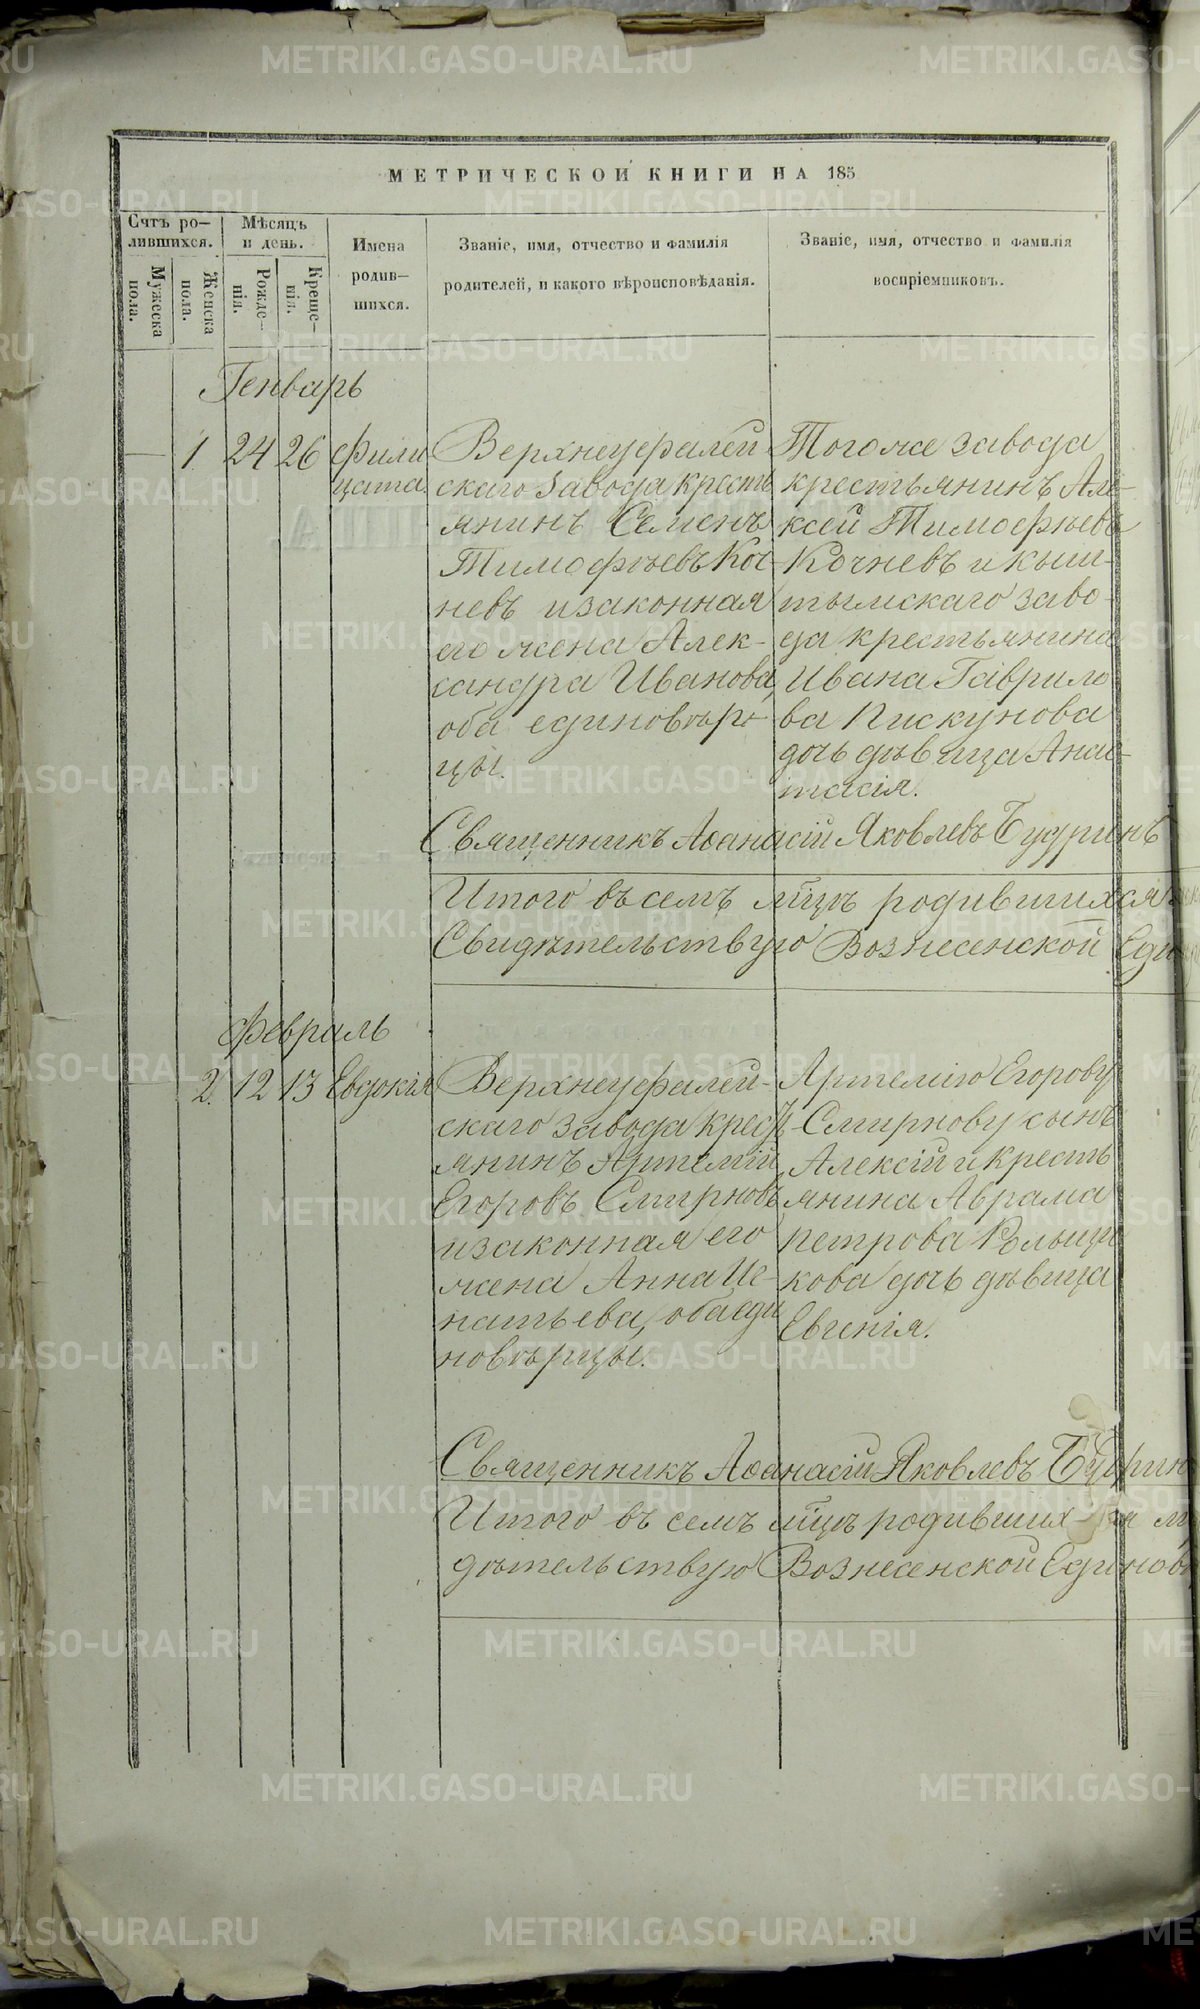 МЕТРИЧЕСКОЙ КНИГИ НА 185
Счтъ ро-
лившихся.
Мѣсяцъ
и день.
Имена
родив-
шихся.
Званіе, имя, отчество и фамилія
родителей, и какого вѣроисповѣданія.
Званіе, имя, отчество и фамилія
воспріемниковъ.
Мужеска
пола.
Женска
пола.
Рожде-
нія.
Креще-
нія.
Генварь
1 24 26
Фили
цата.
Верхнеуфалей
скаго Завода кресть
янинъ Семенъ
Тимофѣевъ Коч-
невъ и законная
его жена Алек-
сандра Иванова,
оба единовѣр-
цы.
Тогоже завода
крестьянинъ Але-
ксей Тимофѣевъ
Кочневъ и кыш-
тымскаго заво-
да крестьянина
Ивана Гаврило
ва Пискунова
дочь дѣвица Анас-
тасія.
Священникъ Аѳанасій Яковлевъ Будринъ
Итого въ семъ мѣцѣ родившихся
Свидѣтельствую Вознесенской Еди
Февраль
2. 12 13 Евдокія
Верхнеуфалей-
скаго завода крестъ
янинъ Артемій
Егоровъ Смирновъ
и законная его
жена Анна Иг-
натьева, оба еди
новѣрцы.
Артемію Егорову
Смирнову сынъ
Алексій и кресть
янина Аврама
петрова
кова дочь дѣвица
Евгенія.
Священникъ Аѳанасій Яковлевъ Будрин
Итого въ семъ мѣцѣ родившихся м
дѣтельствую Вознесенской Единовѣ
METRIKI.GASO-URAL.RU